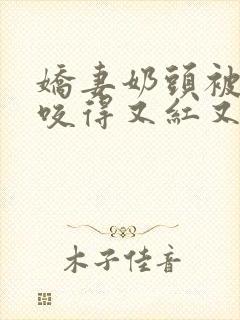 嬌妻奶頭被
咬得又紅又
木子佳音